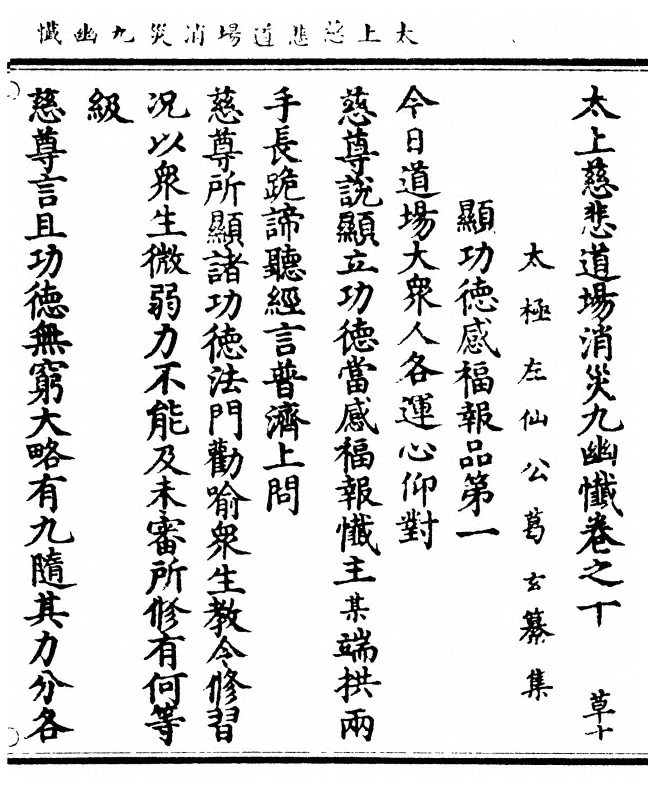 太上慈悲道場消災九幽懺
太上慈悲道場消災九幽懺卷之十 草十
太極左仙公葛玄纂集
顯功德感福報品第一
今日道場大衆人各運心仰對
慈尊說顯立功德當感福報懺主某端拱兩
手長跪諦聽經言普濟上問
慈尊所顯諸功德法門勸喻衆生教令修習
况以衆生微弱力不能及未審所修有何等
級
慈尊言且功德無窮大略有九隨其力分各